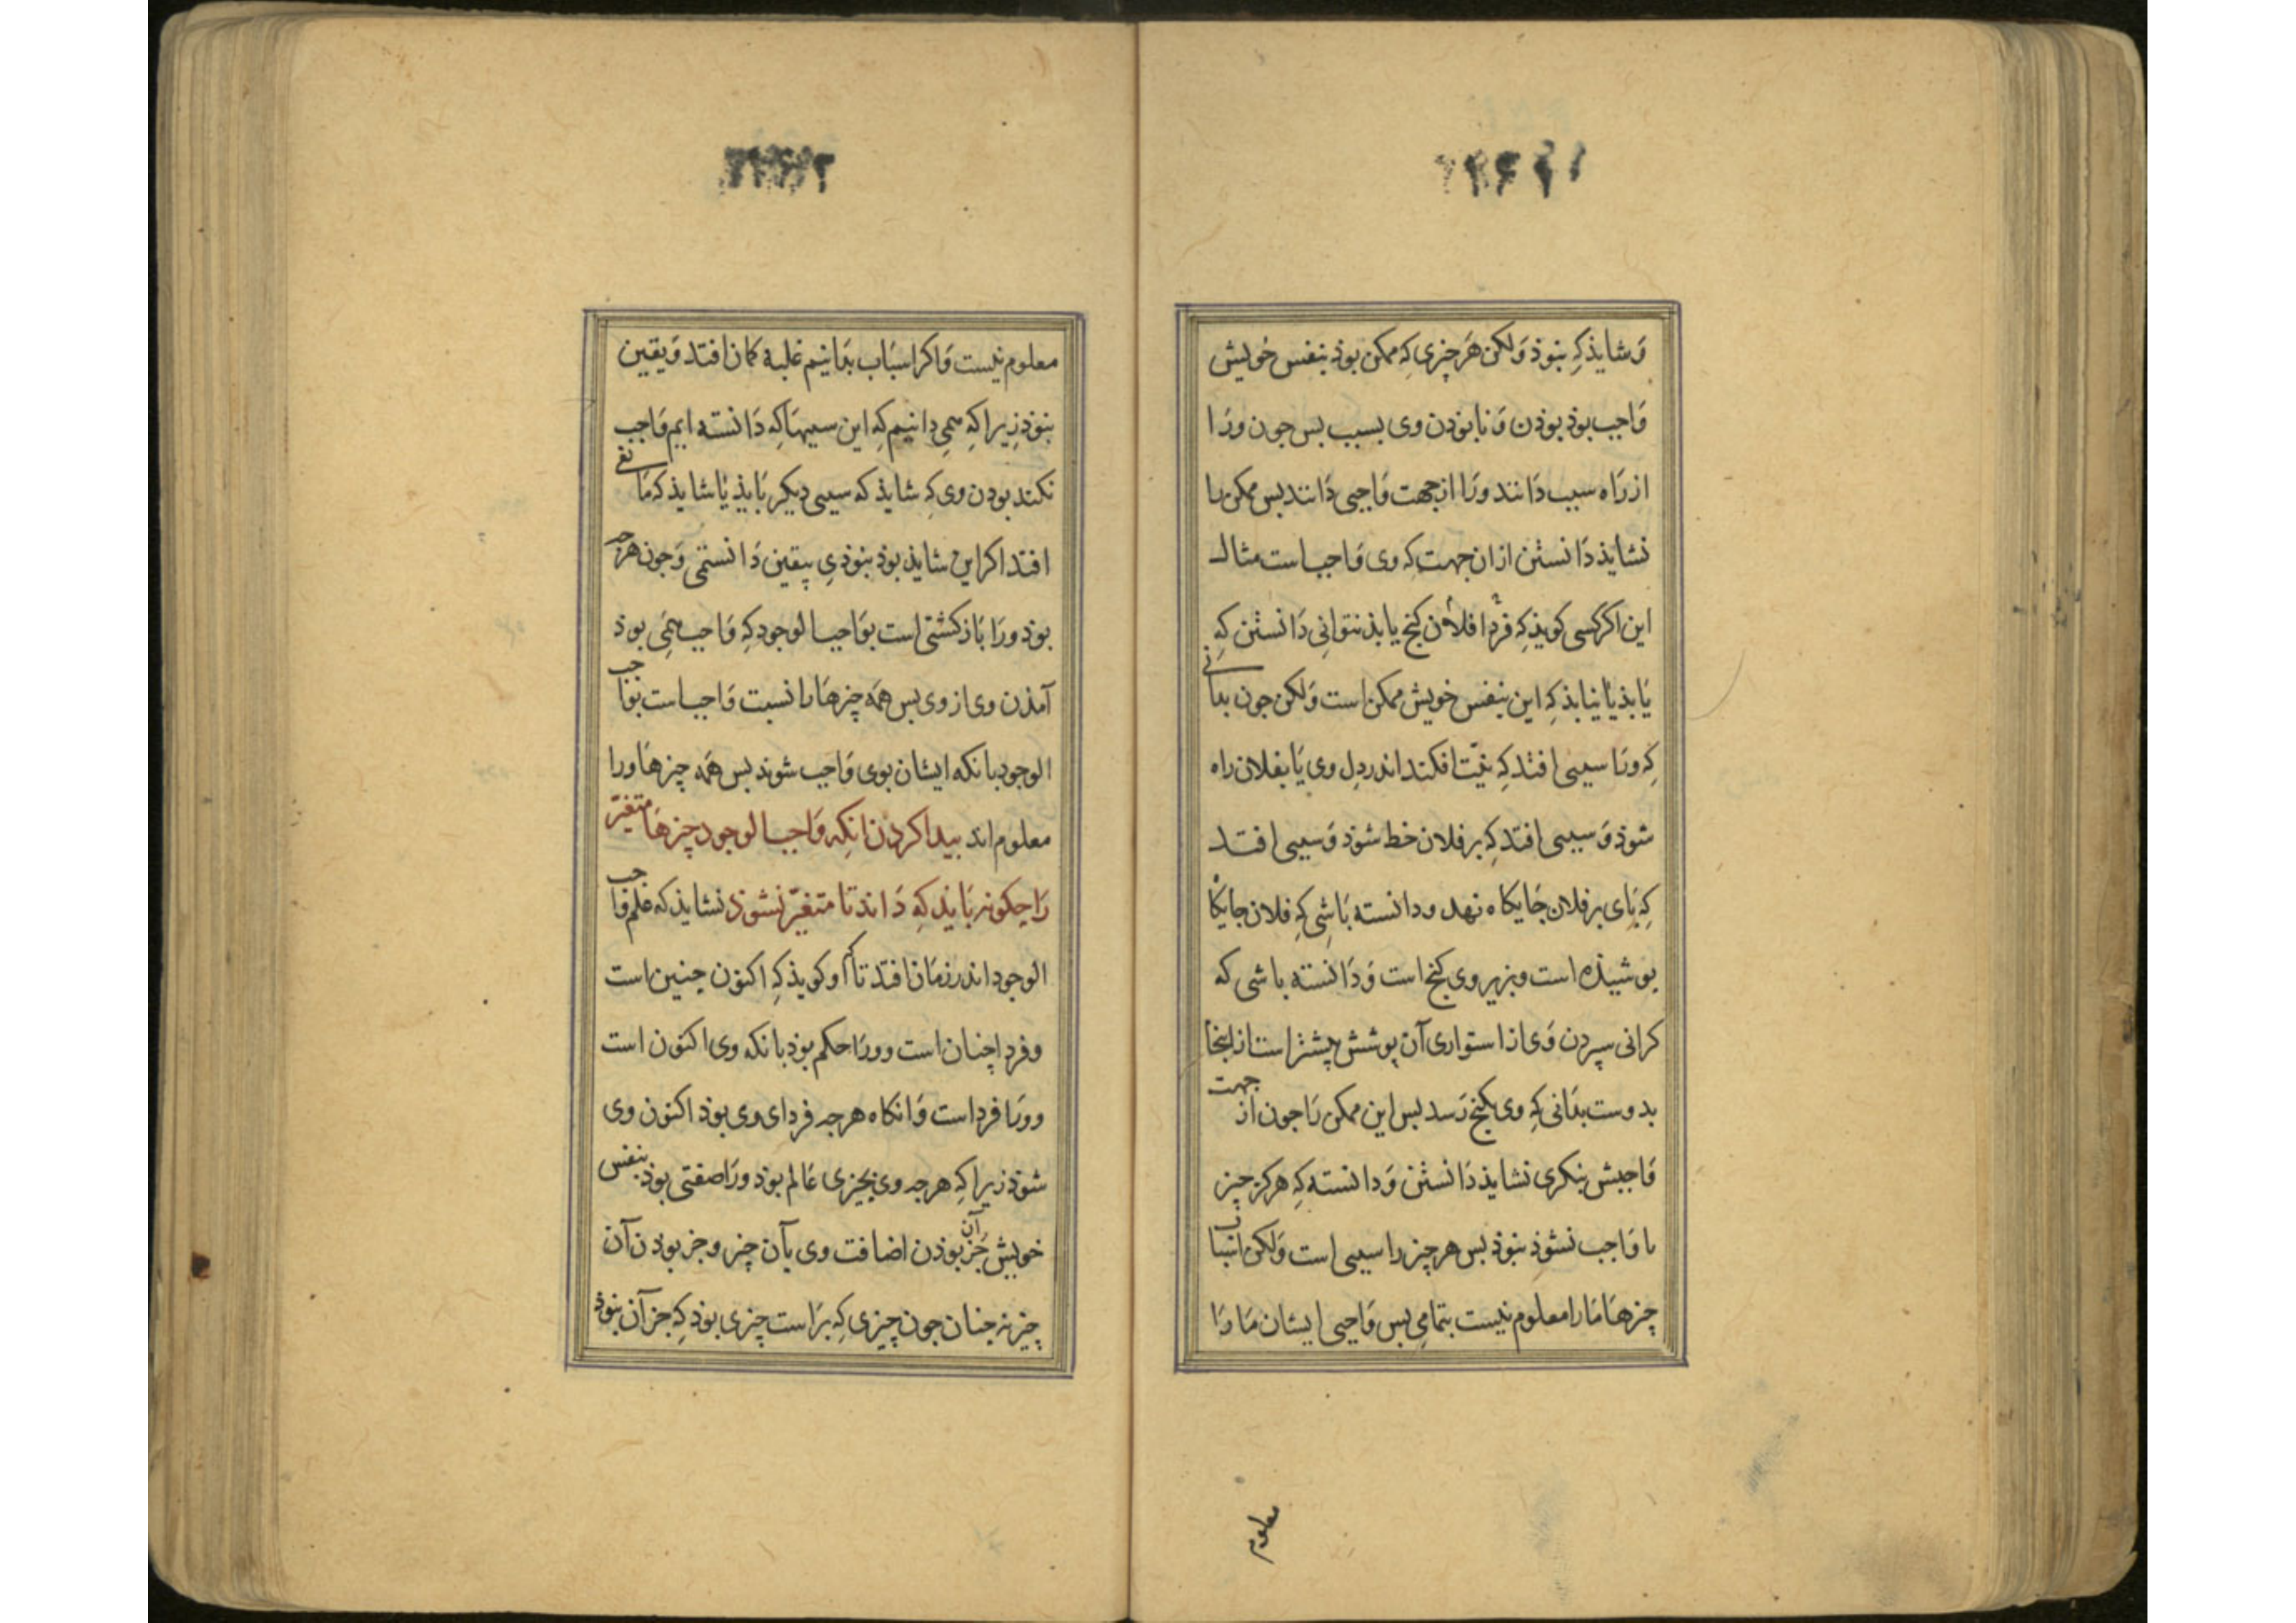 وَشایذ کِه بنوذ وَلکن هَر چیزی کِه ممکن بوذ بنفس خویش
وَاجب بوذ بوذن وَنابوذن وی بسبب بس جون ورَا
از رَاه سبب دَانند ورَا از جهت وَاجبی دَانند بس ممکن را
نشایذ دَانستن ازان جهت کِه وی وَاجب است مثال
این اکر کسی کویذ کِه فردا فلان کنج یابذ نتوانی دَانستن کِه
یَابذ یا نیابذ کِه این بنفس خویش ممکن است وَلکن جون بدانی
کِه ورَا سببی افتد کِه نیّت افکند اندر دِل وی یَا بفلان راه
شوذ وَسببی افتد کِه بر فلان خط شوذ وَسببی افتد
کِه پَای بر فلان جَایکاه نهد ودانسته بَاشی کِه فلان جایکاه
بوشیذه است وبزیر وی کنج است وَدَانسته باشی که
کرانی سپردن وَی از استواری آن پوشش بیشتر است از اینجا
بدوست بدَانی کِه وی بکنج رَسد بس این ممکن رَا جون از جهت
وَاجبیش بنکری نشایذ دَانستن وَدانسته کِه هرکز چیز
تا وَاجب نشوذ بنوذ بس هر چیز را سببی است وَلکن اسباب
چیزهَا مَا را معلوم نیست بتمامِی بس وَاجبی ایشان مَا رَا
معلوم
معلوم نیست وَاکر اسبَاب بدَانیم غلبهٔ کمان افتد وَیقین
بنوذ زیرا کِه همِی دانیم کِه این سببهَا کِه دَانسته ایم وَاجب
نکند بودن وی کِ شایذ که سببی دیکر بَایذ یَا شایذ که مَانعی
افتد اکر این شایذ بوذ بنوذی بیقین دَانستمی وَجون هرجه
بوذ ورَا بَاز کشتی است بوَاجب الوجود کِه وَاجب همَی بوذ
آمذن وی از وی بس همَه چیزهَا را نسبت وَاجب است بوَاجب
الوجود بانکه ایشان بوی وَاجب شوند بس همَه چیزهَا ورا
معلوم اند بیدا کردن انکِه وَاجب الوجود چیزهَا متغیّر
رَا چکونه بَایذ کِه دَاند تا متغیّر نشوذ نشایذ که علم وَاجب
الوجود اندر زمَان افتد تا او کویذ کِه اکنون جنین است
وفردا چنان است وورَا حکم بوذ بانکه وی اکنون است
وورَا فردا است وَانکاه هرجه فردای وی بوذ اکنون وی
شوذ زیرا کِه هرجه وی بچیزی عَالم بوذ ورَا صفتی بوذ بنفس
خویش جَز آن بوذن اضافت وی بآن چیز وجز بودن آن
چیز نه جنان جون چیزی کِه برَاست چیزی بوذ کِه جز آن بنوذ